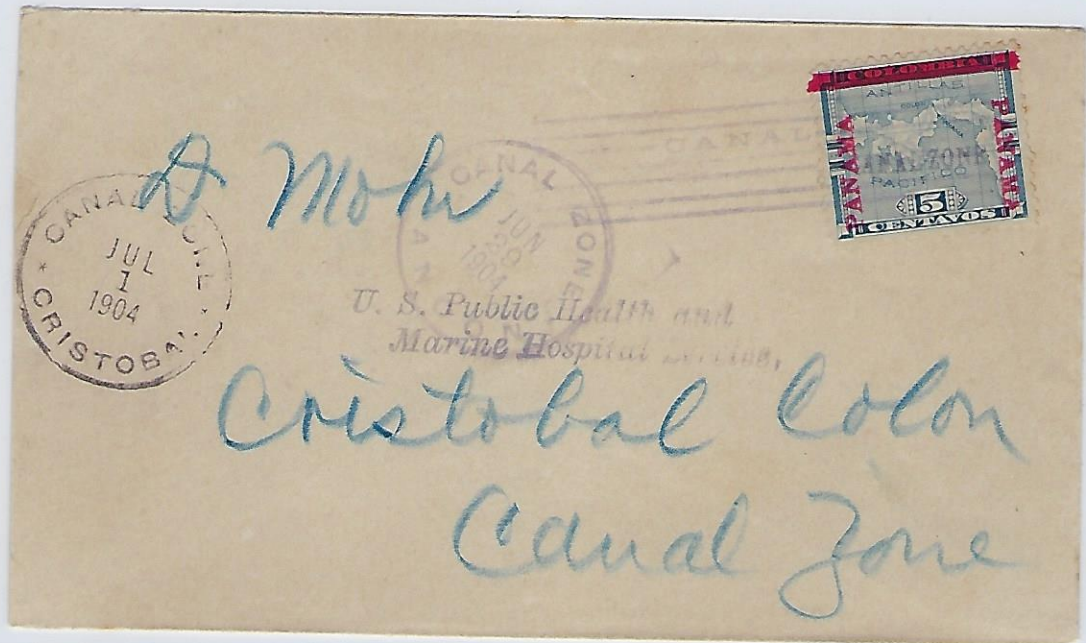 COLOMBIA
ANTILLAS
PANAMA
PANAMA
CANAL ZONE
PACIFICO
5
CENTAVOS
CANAL
CANAL ZONE
JUN
1904
ANCON
CANAL ZONE
JUL
1
1904
CRISTOBAL
D Mohr
U. S. Public Health and
Marine Hospital Service,
Cristobal Colon
Canal Zone